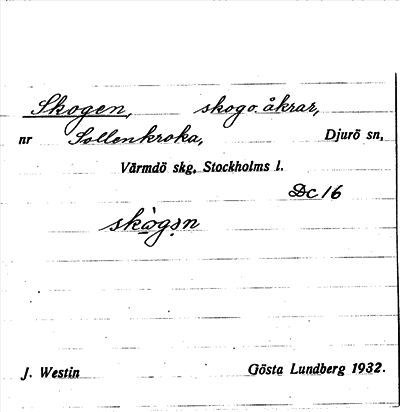 Skogen, skog o. åkrar,
nr Sollenkroka, Djurö sn,
Värmdö skg, Stockholms l.
Dc 16
skògən
J. Westin Gösta Lundberg 1932.